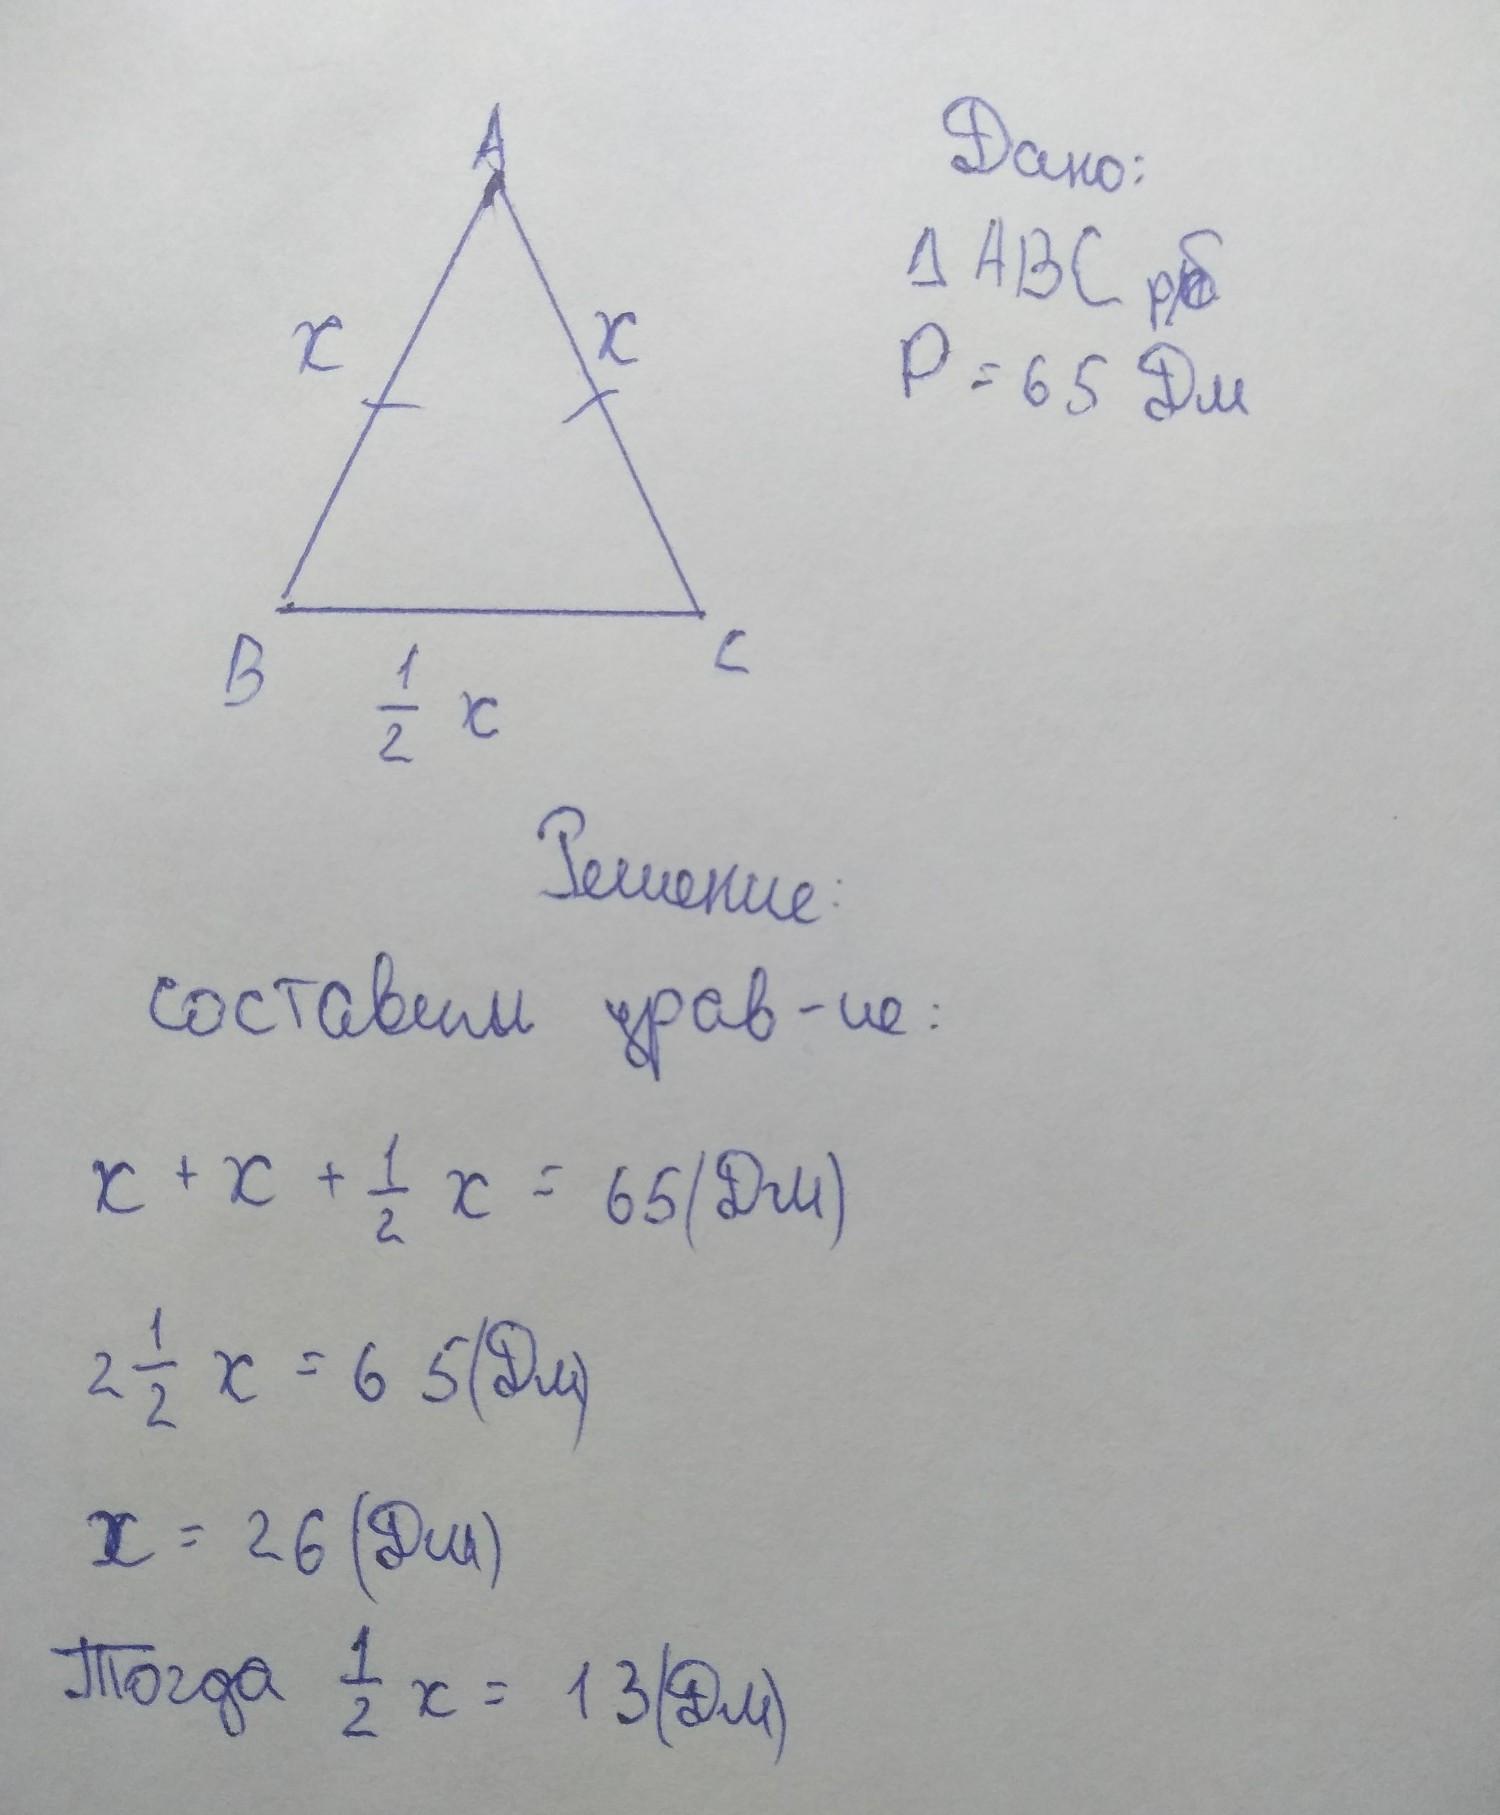 A
Дано:
Δ ABC р/б
P = 65 Дм
x
x
B
C
1/2 x
Решение:
составим урав-ие:
x + x + 1/2 x = 65(Дм)
2 1/2 x = 65(Дм)
x = 26(Дм)
Тогда 1/2 x = 13(Дм)